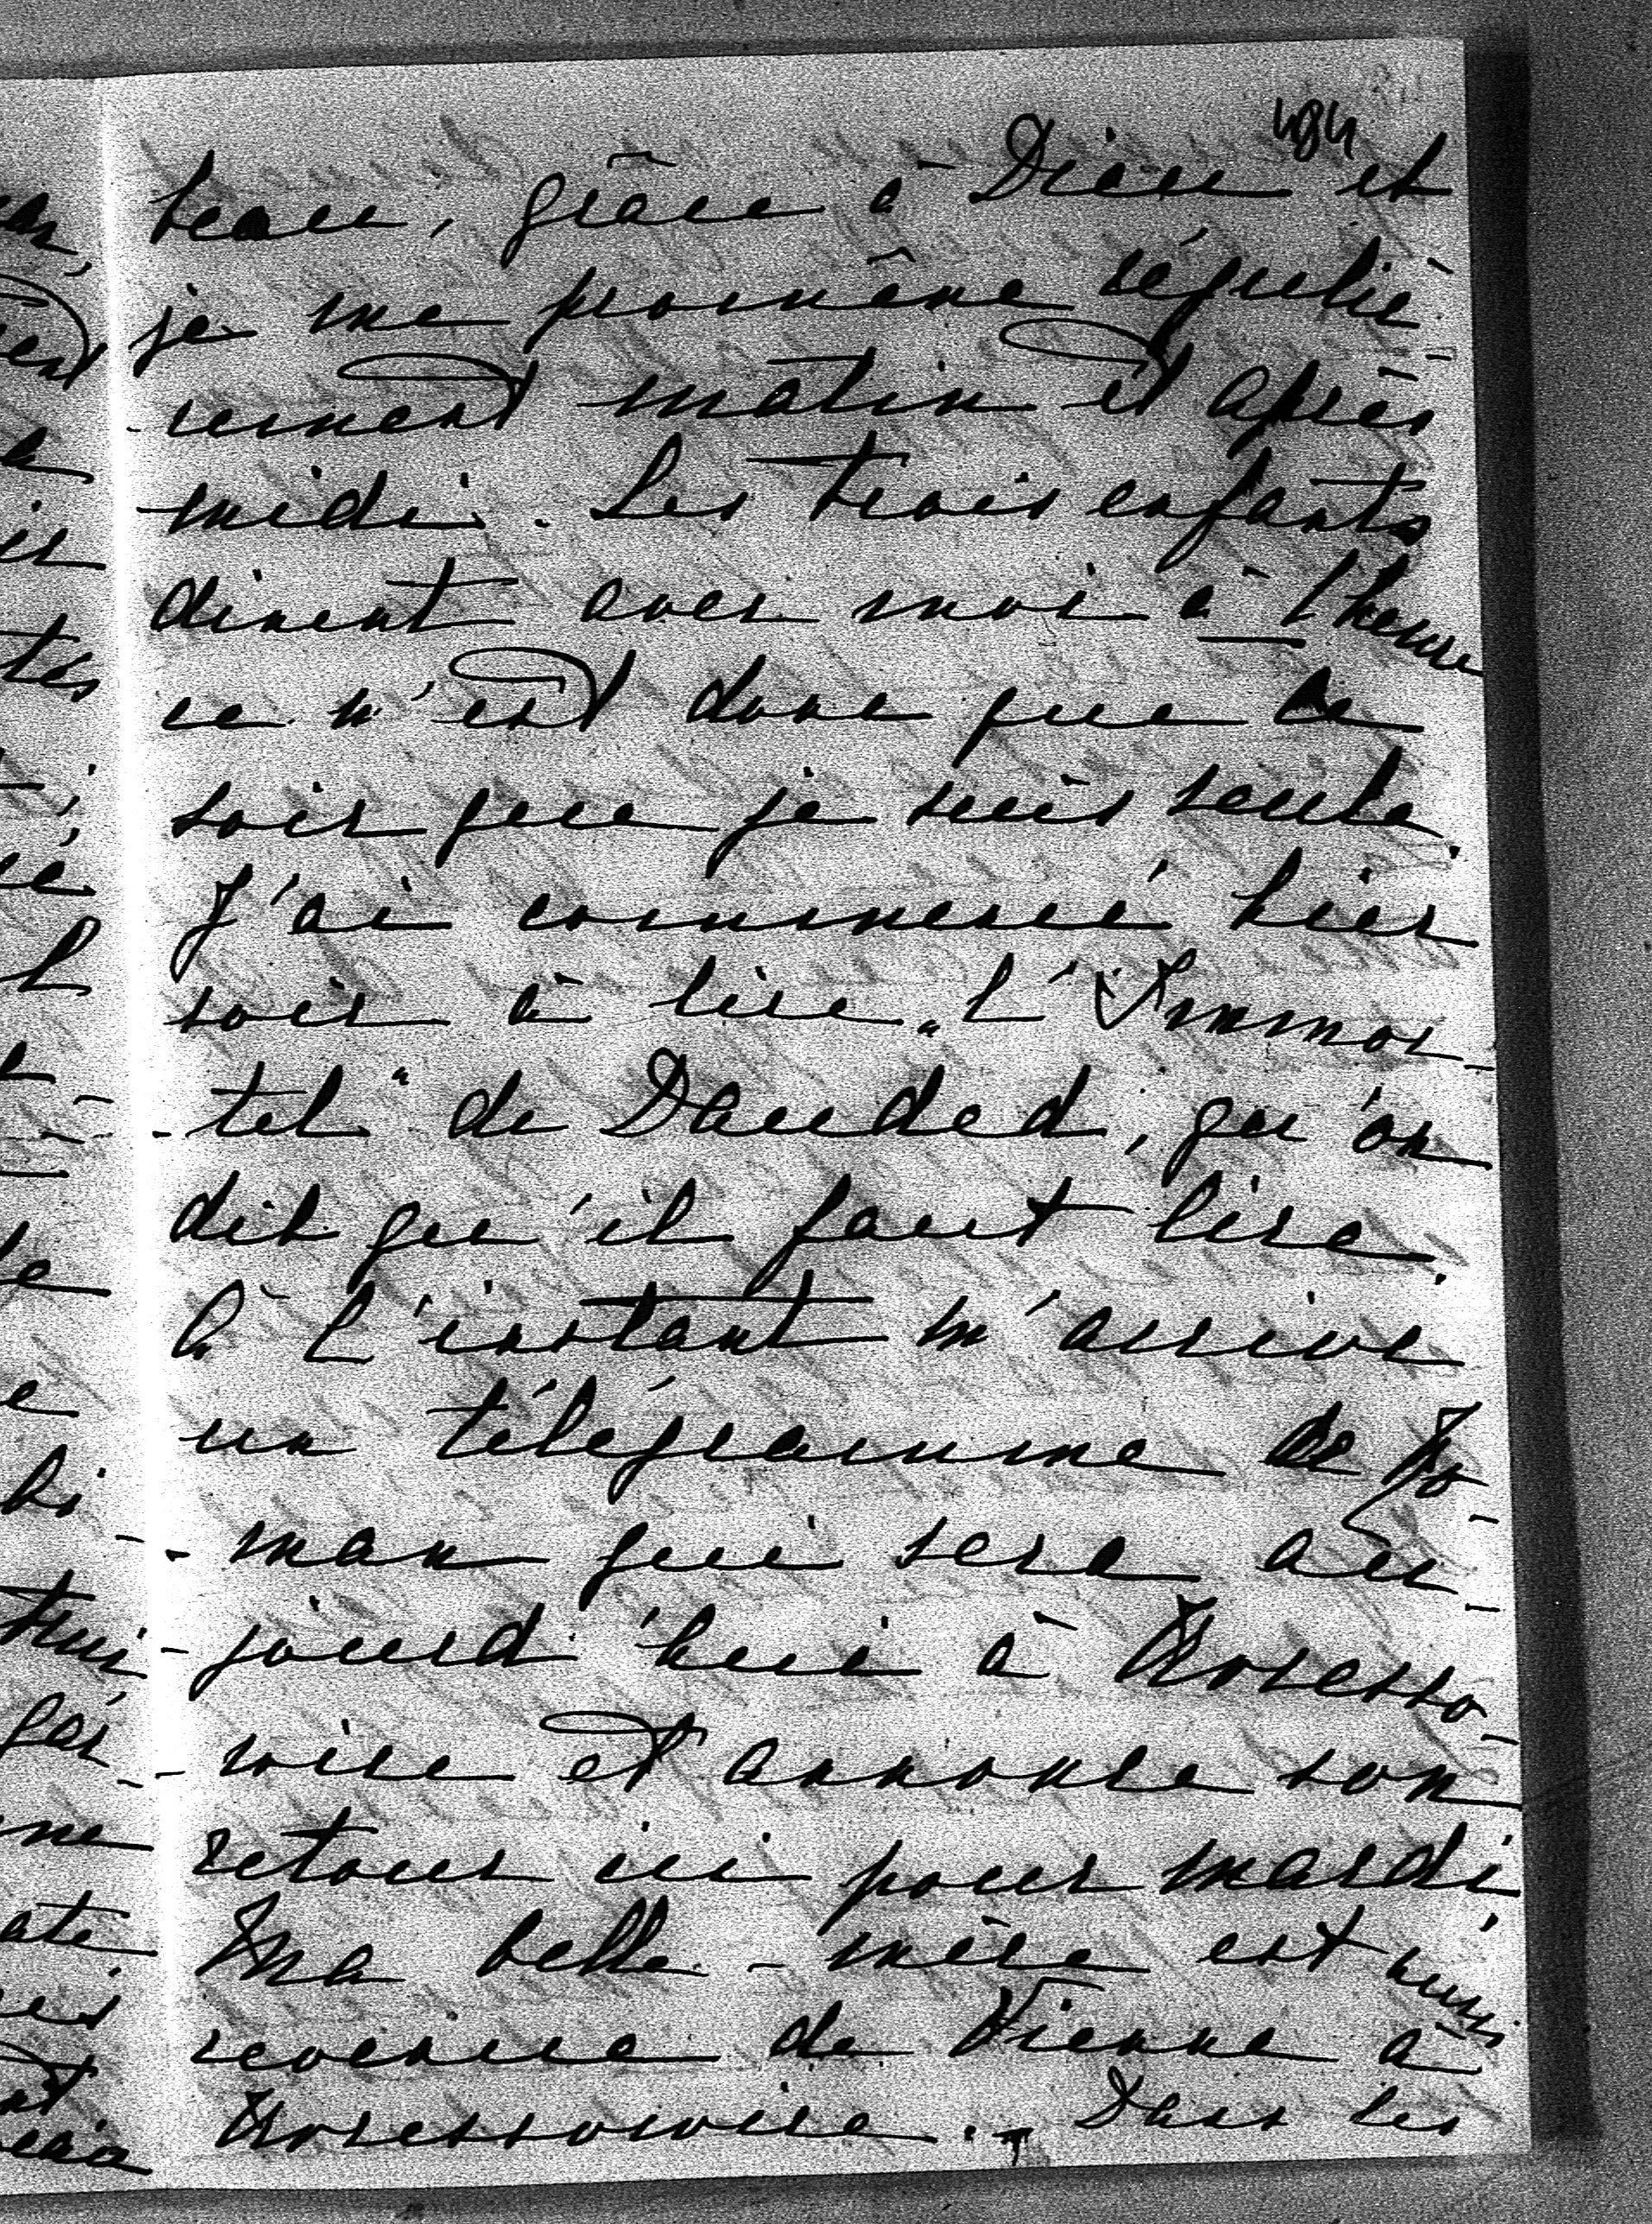 484
beau, grâce à Dieu et
je me promène réguliè-
-rement matin et après-
midi. Les trois enfants
dinent avec moi à 1 heure
ce n'est donc que le
soir que je suis seule.
J'ai commencé hier
soir à lire „L'Immor-
-tel" de Dauded, qu'on
dit qu'il faut lire.
A l'instant m'arrive
un télégramme de Ro-
-man qui sera au-
-jourd'hui à
et annonce son
retour ici pour mardi
Ma belle-mère est aussi
revenue de Vienne à
Dans les